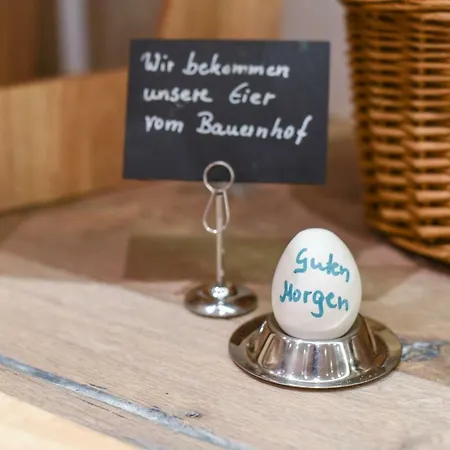 Wir bekommen
unsere Eier
vom Bauernhof
Guten
Morgen